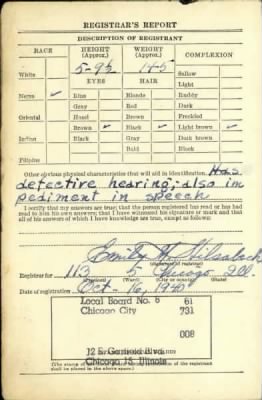 REGISTRAR'S REPORT
DESCRIPTION OF REGISTRANT
RACE HEIGHT (Approx.) WEIGHT (Approx.) COMPLEXION
White 5-9½ 145 Sallow
EYES HAIR Light
Negro ✓ Blue Blonde Ruddy
Gray Red Dark
Oriental Hazel Brown Freckled
Brown ✓ Black ✓ Light brown ✓
Indian Black Gray Dark brown
Bald Black
Filipino
Other obvious physical characteristics that will aid in identification Has
defective hearing; also im
pediment in speech
I certify that my answers are true; that the person registered has read or has had
read to him his own answers; that I have witnessed his signature or mark and that
all of his answers of which I have knowledge are true, except as follows:
Emily W.
(Signature of registrar)
Registrar for 113 5 Chicago Ill.
(Ward) (City or county) (State)
Date of registration Oct - 16, 1940
Local Board No. 8 61
Chicago City 731
008
12 E. Garfield Blvd.
Chicago 15, Illinois
(The stamp of of the registrant
shall be placed in the above space.)